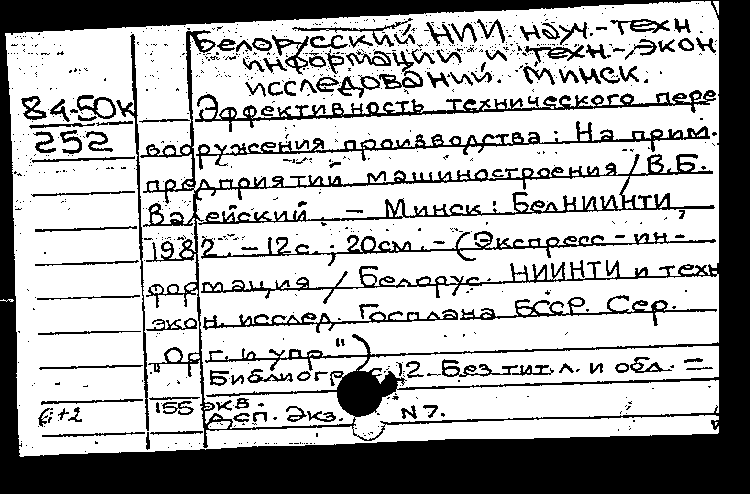 Белорусский НИИ науч.-техн
информации и техн.-экон
исследований. Минск.
84-50к
252
Эффективность технического пере
вооружения производства: На прим.
предприятий машиностроения / В.Б.
Валейский. - Минск: БелНИИНТИ,
1982. - 12 с.; 20 см. - (Экспресс-ин-
формация / Белорус. НИИНТИ и техн
экон. исслед. Госплана БССР. Сер.
"Орг. и упр.")
Библиогр. с. 12. Без тит. л. и обл. =
155 экз.
Д.сп. Экз. N 7.
6+2